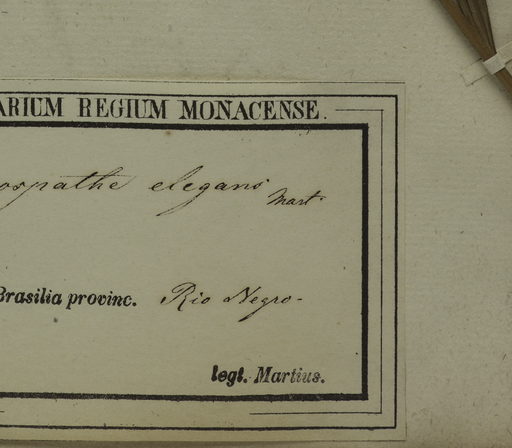 ARIUM REGIUM MONACENSE.
ospathe elegans Mart.
Brasilia provinc. Rio Negro-
legt. Martius.